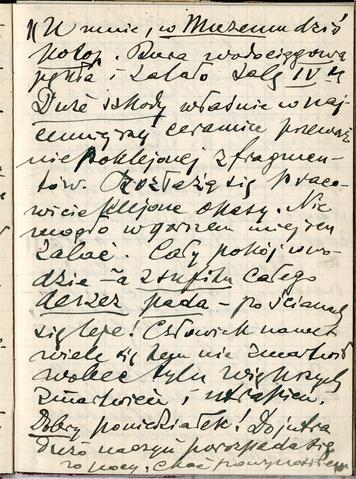 "U mnie, w Muzeum dziś
potop. Rura wodociągowa
pękła i zalało salę IV-tą
Duże szkody właśnie w naj
cenniejszej ceramice przeważ
nie poklejonej z fragmen-
tów. Rozłażą się praco-
wicie klejone okazy. Nie
mogło w gorszem miejscu
zalać. Cały pokój w wo-
dzie – a z sufitu całego
deszcz pada – po ścianach
się leje! Człowiek nawet
wiele się tem nie zmartwił
wobec tylu większych
zmartwień i utrapień.
Dobry poniedziałek! Do jutra
dużo naczyń porozpada się
po nocy, choć powynosiłem